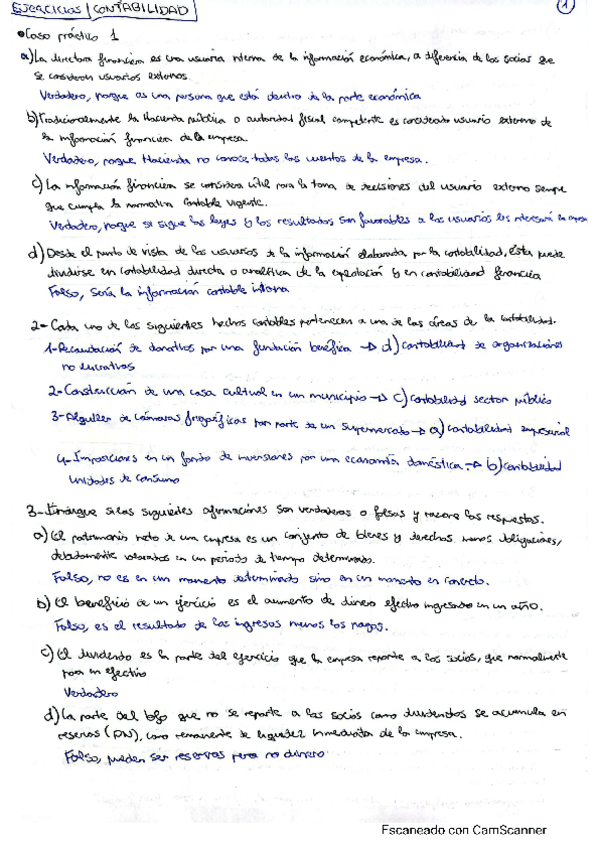 EJERCICIOS | CONTABILIDAD
1
• Caso práctico 1
a) La directora financiera es una usuaria interna de la información económica, a diferencia de los socios que
se consideran usuarios externos.
Verdadero, porque es una persona que está dentro de la parte económica
b) Tradicionalmente la Hacienda pública o autoridad fiscal competente es considerado usuario externo de
la información financiera de la empresa.
Verdadero, porque Hacienda no conoce todas las cuentas de la empresa.
c) La información financiera se considera útil para la toma de decisiones del usuario externo siempre
que cumpla la normativa contable vigente.
Verdadero, porque si sigue las leyes y los resultados son favorables a los usuarios les interesará la empresa
d) Desde el punto de vista de los usuarios de la información elaborada por la contabilidad, ésta puede
dividirse en contabilidad directa o analítica de la explotación y en contabilidad financiera
Falso, sería la información contable interna
2- Cada uno de los siguientes hechos contables pertenecen a una de las áreas de la contabilidad.
1- Recaudación de donativos por una fundación benéfica → d) contabilidad de organizaciones
no lucrativas
2- Construcción de una casa cultural en un municipio → c) contabilidad sector público
3- Alquiler de cámaras frigoríficas por parte de un supermercado → a) contabilidad empresarial
4- Imposiciones en un fondo de inversiones por una economía doméstica → b) contabilidad
unidades de consumo
3- Indique si las siguientes afirmaciones son verdaderas o falsas y razone las respuestas.
a) El patrimonio neto de una empresa es un conjunto de bienes y derechos menos obligaciones,
debidamente valorados en un periodo de tiempo determinado.
Falso, no es en un momento determinado sino en un momento en concreto.
b) El beneficio de un ejercicio es el aumento de dinero efectivo ingresado en un año.
Falso, es el resultado de los ingresos menos los pagos.
c) El dividendo es la parte del ejercicio que la empresa reparte a los socios, que normalmente
en efectivo
Verdadero
d) La parte del que no se reparte a los socios como dividendos se acumula en
reservas (PN), como remanente de liquidez inmediata de la empresa.
Falso, pueden ser reservas pero no dinero
Escaneado con CamScanner